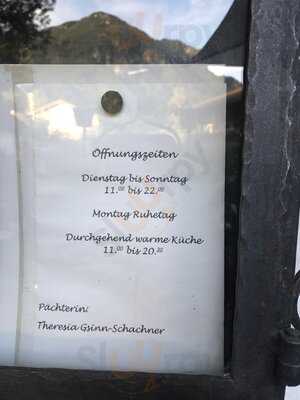 Öffnungszeiten
Dienstag bis Sonntag
11.00 bis 22.00
Montag Ruhetag
Durchgehend warme Küche
11.00 bis 20.30
Pächterin:
Theresia Gsinn-Schachner